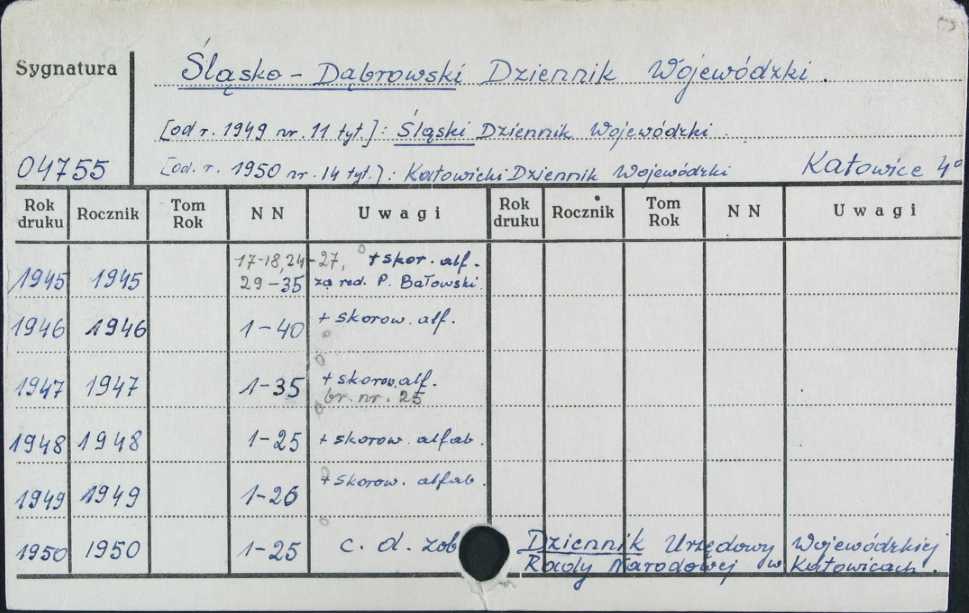 Sygnatura
Śląsko – Dąbrowski Dziennik Wojewódzki.
[od r. 1949 nr. 11 tyt.]: Śląski Dziennik Wojewódzki
04755 [od. r. 1950 nr. 14 tyt.]: Katowicki Dziennik Wojewódzki Katowice 4°
Rok druku Rocznik Tom Rok N N Uwagi Rok druku Rocznik Tom Rok N N Uwagi
1945 1945 17-18, 24-27, 29-35 + skor. alf. za red. P. Bałowski.
1946 1946 1-40 + skorow. alf.
1947 1947 1-35 + skorow. alf. br. nr. 25
1948 1948 1-25 + skorow. alfab.
1949 1949 1-26 + skorow. alfab.
1950 1950 1-25 c. d. zob Dziennik Urzędowy Wojewódzkiej
Rady Narodowej w Katowicach.